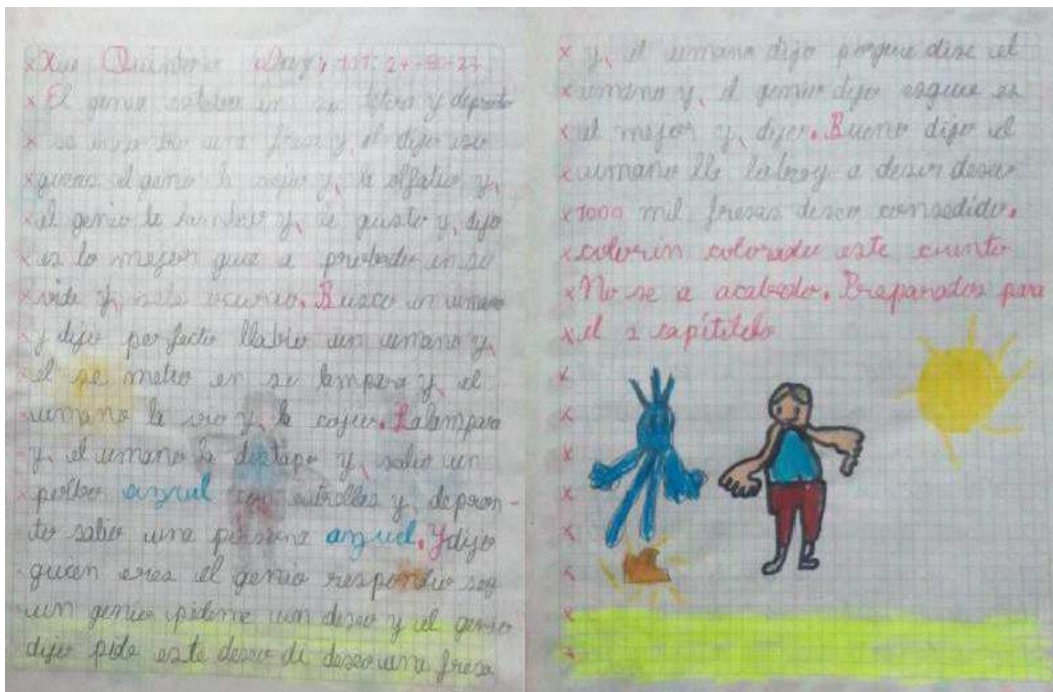 x Quintero
x El genio estaba en su tetera y depronto
x se una fresa y el dijo eso
x queres el genio la cojio y, la olfatio y,
x el genio la y, le gusto y, dijo
x es lo mejor que a probado en su
x vida y, esto ocurrio. Busco un umano
y dijo perfecto llabio um umano y,
el se metio en su lampara y, el
umano la vio y, la cojio. Lalampara
y, el umano la distapo y, salio un
polbo azul con estrellas y, depron-
to salio una persona azul. Y dijo
quien eres el genio respondio soy
um genio pideme um deseo y el genio
dijo pide este deseo di deseo una fresa
x y, el umano dijo porque dise el
x umano y, el genio dijo esque es
x el mejor y, dijo. Bueno dijo el
x umano lla laboy a desir deseo
x 1000 mil fresas deseo consedido.
x colorin colorado este cuento
x No se a acabado. Preparados para
x el 2 capítitelo
x
x
x
x
x
x
x
x